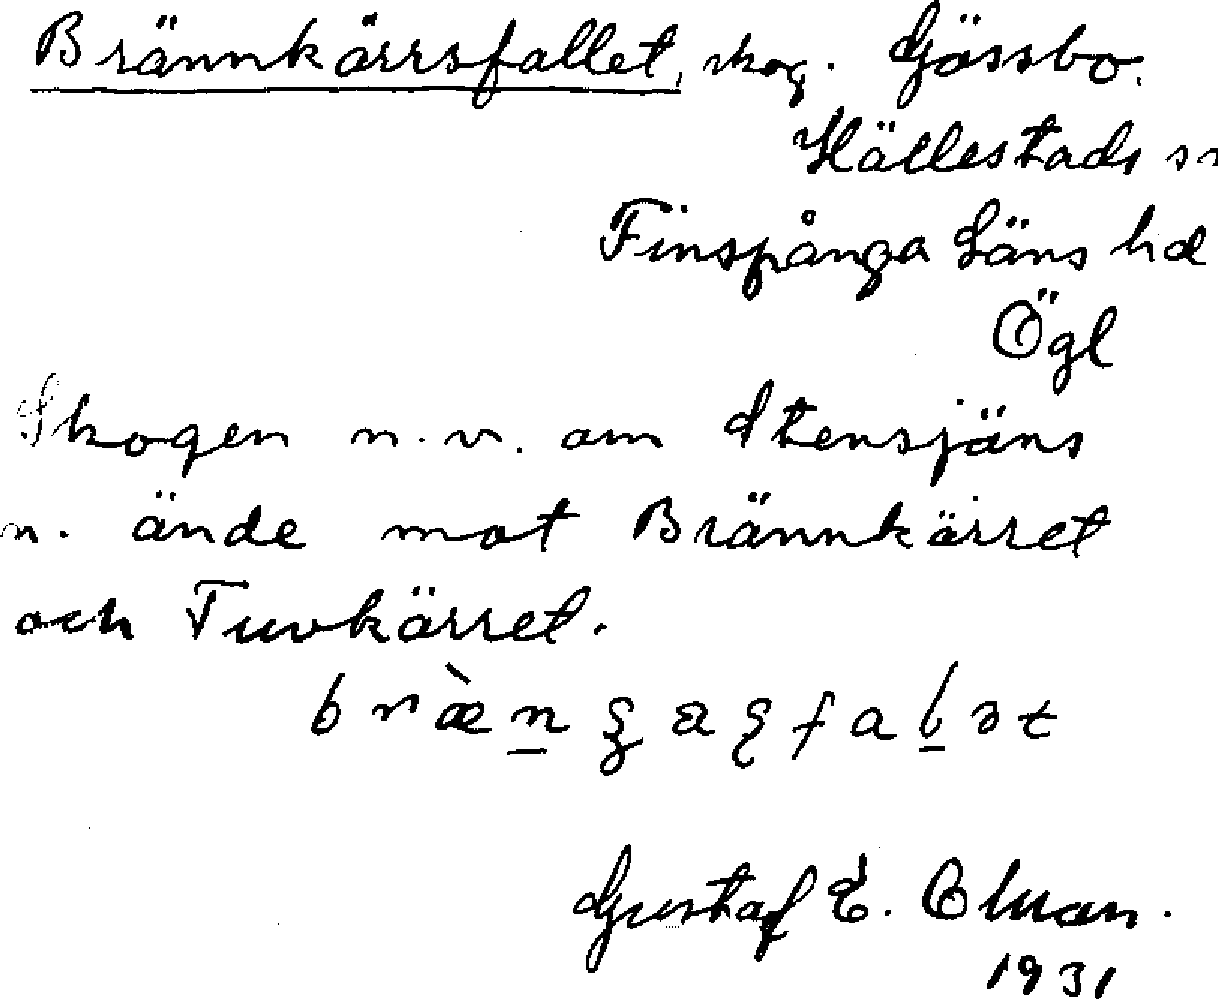 Brännkärrsfallet, skog. Gässbo.
Hällestads sn
Finspånga Läns hd
Ögl
Skogen n.v. om Stensjöns
n. ände mot Brännkärret
och Tuvkärret.
Gustaf E.
1931